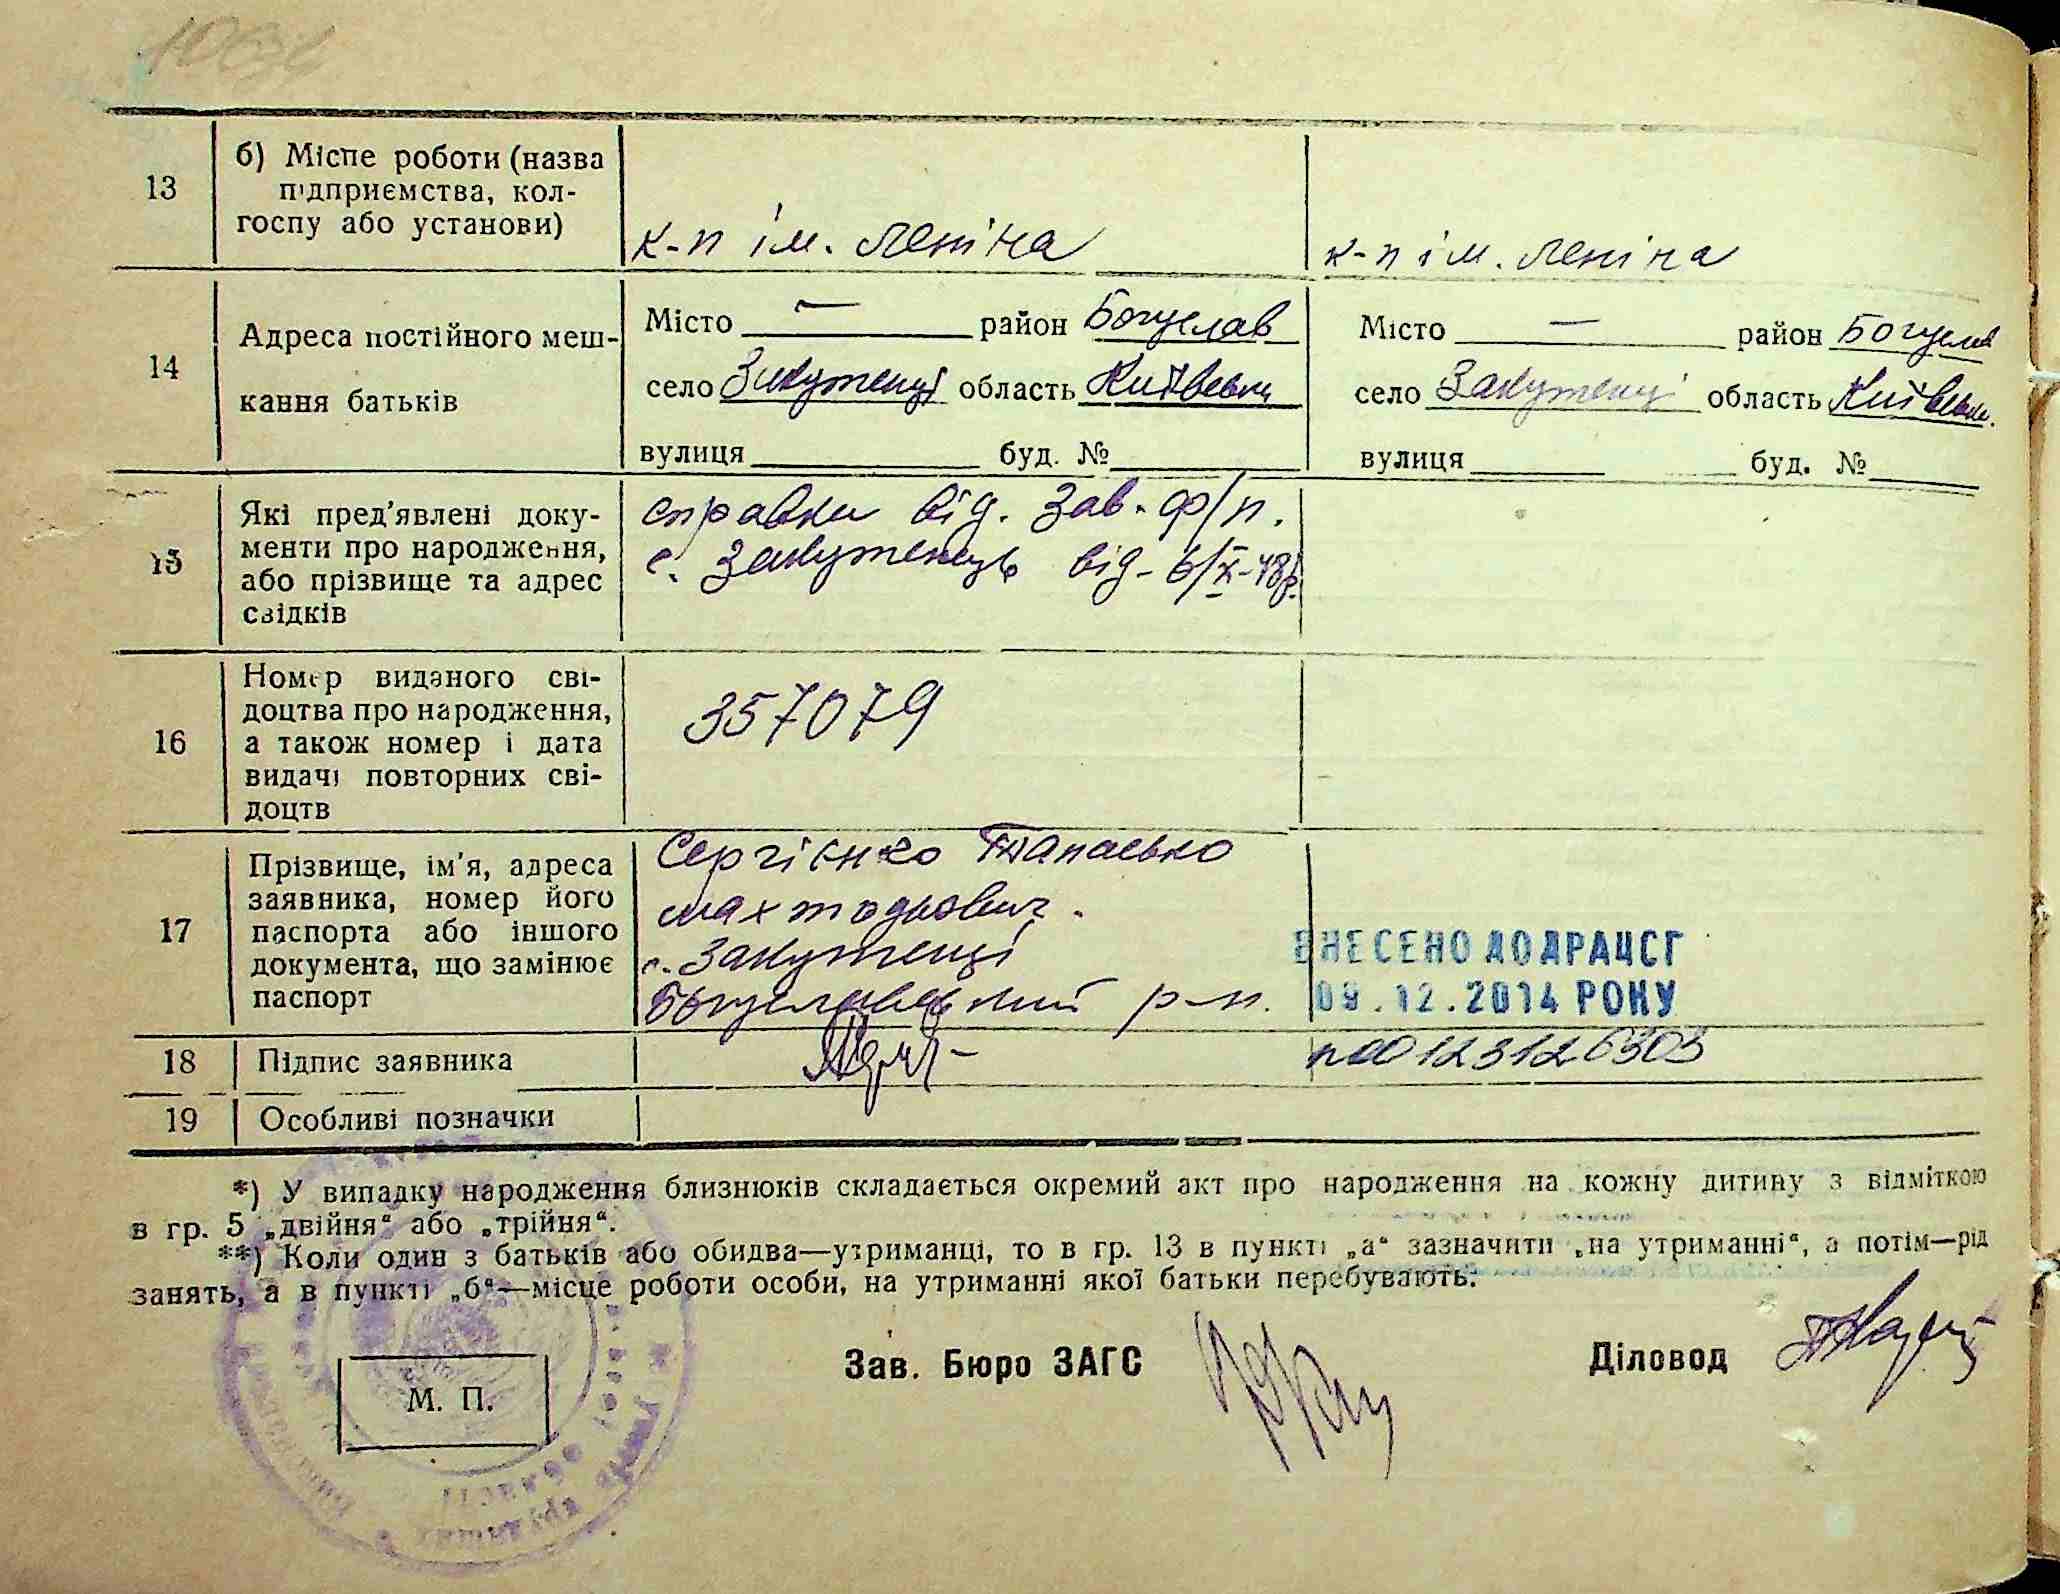 13
б) Місце роботи (назва
підприємства, кол-
госпу або установи)
к-п ім. Леніна
к-п ім. Леніна
14
Адреса постійного меш-
кання батьків
Місто — район Богуслав
село Закутенці область Київськ
вулиця буд. №
Місто — район Богуслав
село Закутенці область Київськ.
вулиця буд. №
15
Які пред'явлені доку-
менти про народження,
або прізвище та адрес
свідків
справки від. Зав. ф/п.
с. Закутенець від - 6/X-48р.
16
Номер виданого сві-
доцтва про народження,
а також номер і дата
видачі повторних сві-
доцтв
357079
17
Прізвище, ім'я, адреса
заявника, номер його
паспорта або іншого
документа, що замінює
паспорт
Сергієнко
с. Закутенці
Богуславський р-н.
ВНЕСЕНО ДО ДРАЦСГ
09.12.2014 РОКУ
18
Підпис заявника
00123126303
19
Особливі позначки
*) У випадку народження близнюків складається окремий акт про народження на кожну дитину з відміткою
в гр. 5 „двійня“ або „трійня“.
**) Коли один з батьків або обидва—утриманці, то в гр. 13 в пункті „а“ зазначити „на утриманні“, а потім—рід
занять, а в пункті „б“—місце роботи особи, на утриманні якої батьки перебувають.
Зав. Бюро ЗАГС
Діловод
М. П.